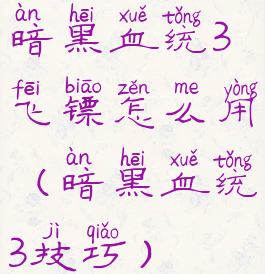 àn hēi xuě tǒng
暗黑血统3
fēi biāo zěn me yòng
飞镖怎么用
àn hēi xuě tǒng
（暗黑血统
jì qiǎo
3技巧）